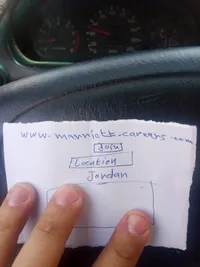 www.marriott-careers.com
Location
Jordan